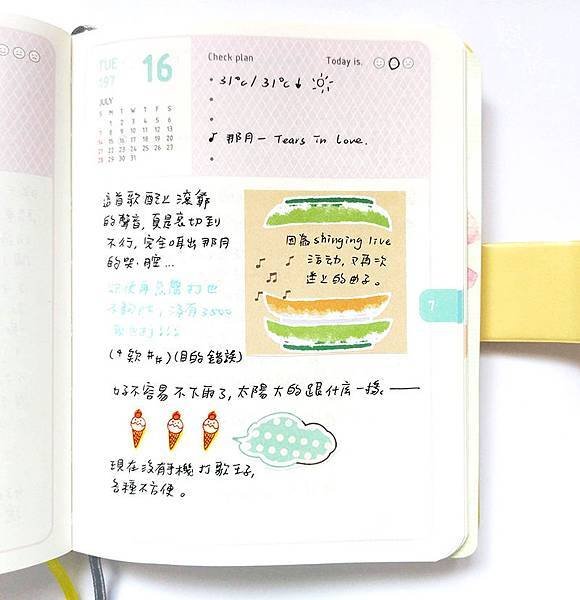 TUE
197
16
JULY
S M T W T F S
1 2 3 4 5 6
7 8 9 10 11 12 13
14 15 16 17 18 19 20
21 22 23 24 25 26 27
28 29 30 31
Check plan
Today is.
31°C / 31°C ↓
♪ 那月 - Tears in love.
這首歌配上滾爺
的聲音,真是哀切到
不行,完全唱出那月
的哭腔...
因為 shinging live
活動,又再次
迷上的曲子。
7
(食欸##)(目的錯誤)
好不容易不下雨了,太陽大的跟什麼一樣。——
現在沒有手機打歌王子,
各種不方便。